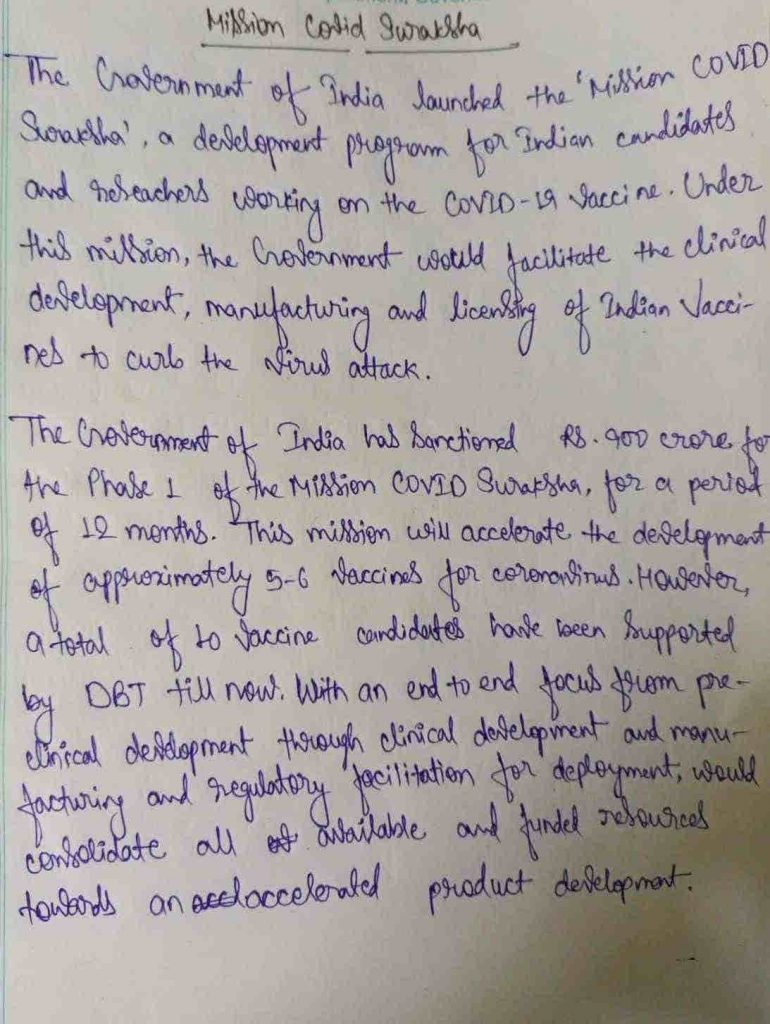 Mission Covid Suraksha
The Government of India launched the 'Mission COVID
Suraksha', a development program for Indian candidates
and reseachers working on the COVID-19 Vaccine. Under
this mission, the Government would facilitate the clinical
development, manufacturing and licensing of Indian Vacci-
nes to curb the virus attack.
The Government of India has sanctioned Rs. 900 crore fo
the Phase 1 of the Mission COVID Suraksha, for a period
of 12 months. This mission will accelerate the development
of approximately 5-6 vaccines for coronavirus. However,
a total of 10 vaccine candidates have been supported
by DBT till now. With an end to end focus from pre-
clinical development through clinical development and manu-
facturing and regulatory facilitation for deployment, would
consolidate all available and funded resources
towards an accelerated product development.